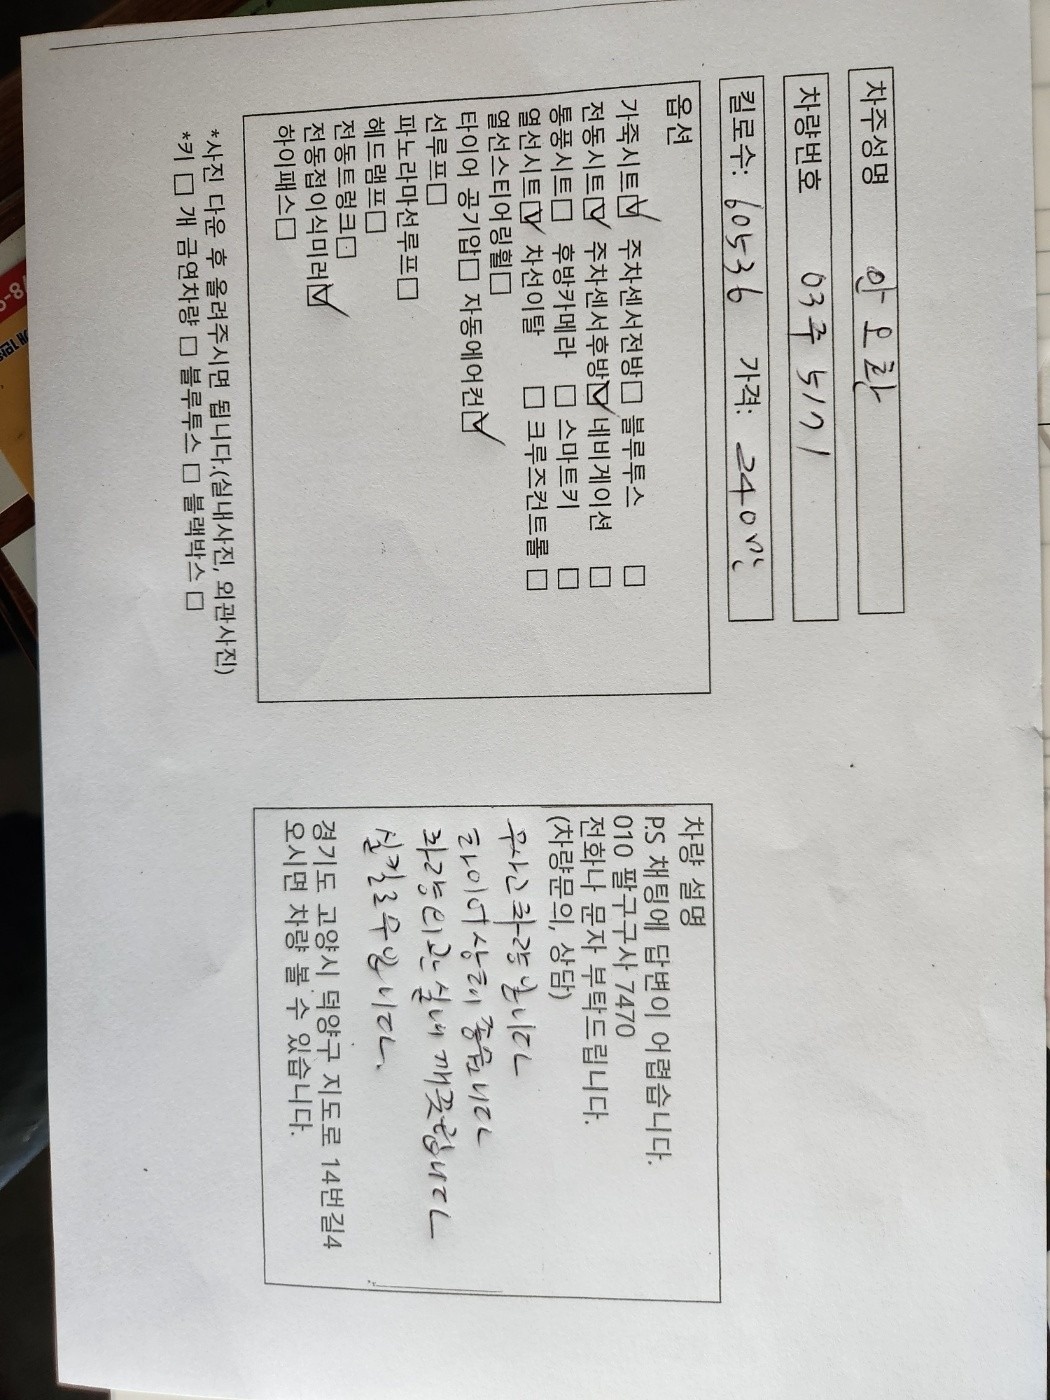 차주성명 안오환
차량번호 03주 5171
킬로수: 60536 가격: 240만
옵션
가죽시트☑ 주차센서전방☐ 블루투스 ☐
전동시트☑ 주차센서후방☑ 네비게이션 ☐
통풍시트☐ 후방카메라 ☐ 스마트키 ☐
열선시트☑ 차선이탈 ☐ 크루즈컨트롤 ☐
열선스티어링휠☐
타이어 공기압☐ 자동에어컨☑
선루프☐
파노라마선루프☐
헤드램프☐
전동트렁크☐
전동접이식미러☑
하이패스☐
*사진 다운 후 올려주시면 됩니다.(실내사진, 외관사진)
*키 ☐ 개 금연차량 ☐ 블루투스 ☐ 블랙박스 ☐
차량 설명
P.S 채팅에 답변이 어렵습니다.
010 팔구구사 7470
전화나 문자 부탁드립니다.
(차량문의, 상담)
무사고차량입니다
타이어상태 좋습니다
차량외관실내 깨끗합니다
실킬로수입니다.
경기도 고양시 덕양구 지도로 14번길4
오시면 차량 볼 수 있습니다.